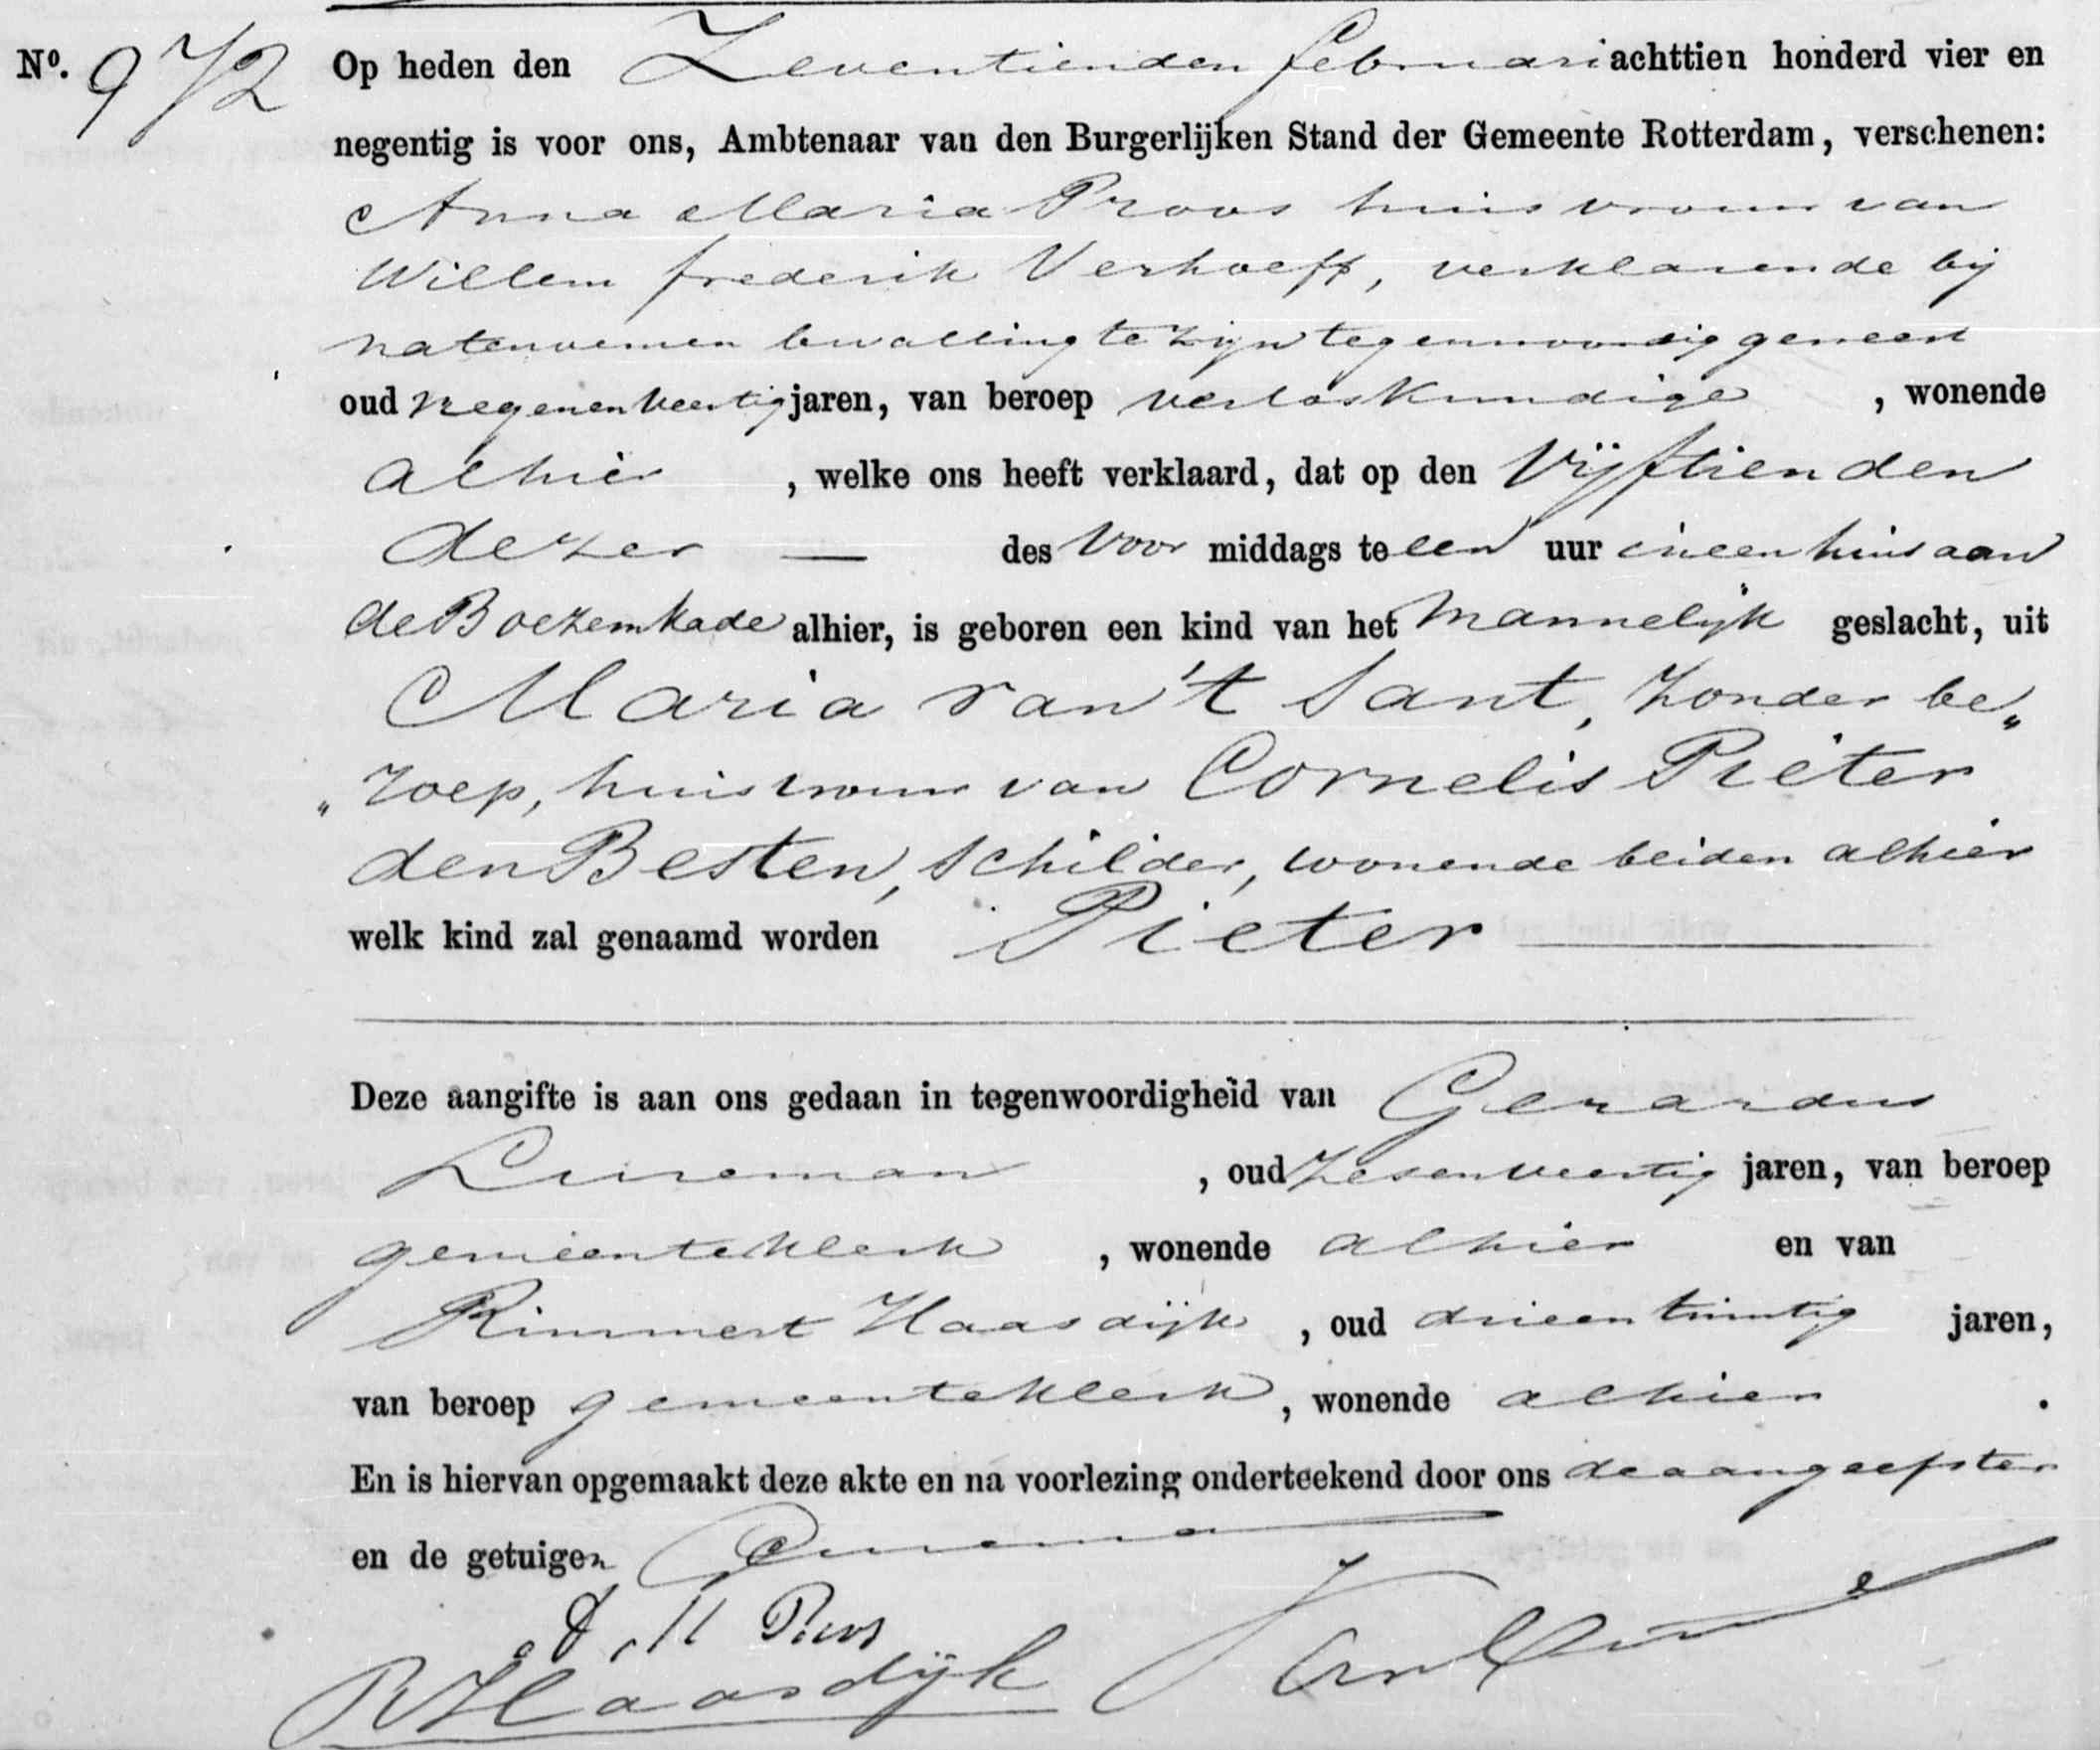 Nº. 972 Op heden den Zeventienden februari achttien honderd vier en
negentig is voor ons, Ambtenaar van den Burgerlijken Stand der Gemeente Rotterdam, verschenen:
Anna Maria Proos huisvrouw van
Willem frederik Verhoeff, verklarende bij
natenoemen bevalling te zijn tegenwoordig geweest
oud negenenveertig jaren, van beroep verloskundige , wonende
alhier , welke ons heeft verklaard, dat op den Vijftienden
dezer — des Voor middags te een uur in een huis aan
de Boezemkade alhier, is geboren een kind van het Mannelijk geslacht, uit
Maria van 't Sant, zonder be„
„roep, huisvrouw van Cornelis Pieter
den Besten, schilder, wonende beiden alhier
welk kind zal genaamd worden Pieter
Deze aangifte is aan ons gedaan in tegenwoordigheid van Gerardus
Luneman , oud zesenveertig jaren, van beroep
gemeenteklerk , wonende alhier en van
Rimmert Haasdijk , oud drieentwintig jaren,
van beroep gemeenteklerk , wonende alhier .
En is hiervan opgemaakt deze akte en na voorlezing onderteekend door ons de aangeefster
en de getuigen
A M Proos
R Haasdijk